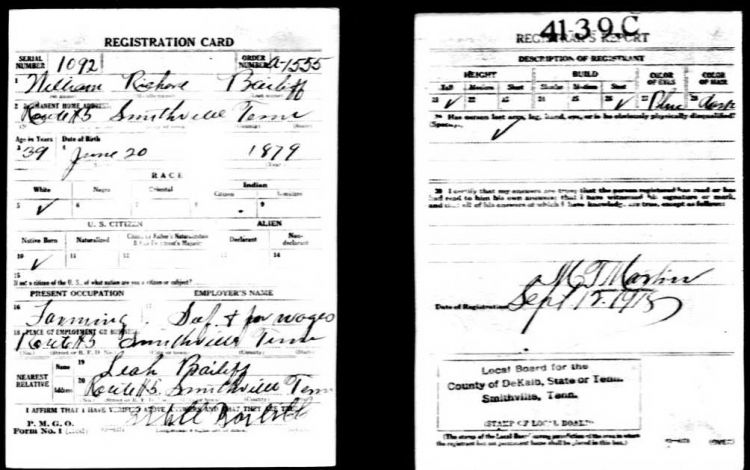 REGISTRATION CARD
SERIAL NUMBER 1092 ORDER NUMBER a-1555
1 William Richard Bailiff
2 PERMANENT HOME ADDRESS
Route #5 Smithville Tenn
Age in Years Date of Birth
3 39 4 June 20 1879
RACE
White Negro Oriental Indian
Citizen
5 ✓ 6 7 8 9
U. S. CITIZEN ALIEN
Native Born Naturalized Declarant Non-declarant
10 ✓ 11 12 13 14
15
If not a citizen of the U. S., of what nation are you a citizen or subject?
PRESENT OCCUPATION EMPLOYER'S NAME
16 Farming 17 Self & for wages
18 PLACE OF EMPLOYMENT OR BUSINESS
Route #5 Smithville Tenn
NEAREST RELATIVE Name 19 Leah Bailiff
Address 20 Route #5 Smithville Tenn
I AFFIRM THAT I HAVE VERIFIED ABOVE ANSWERS AND THAT THEY ARE TRUE
P. M. G. O.
Form No. 1
4139C
REGISTRAR'S REPORT
DESCRIPTION OF REGISTRANT
HEIGHT BUILD COLOR OF EYES COLOR OF HAIR
Tall Medium Short Slender Medium Stout
21 ✓ 22 23 24 25 26 ✓ 27 Blue 28 dark
29 Has person lost arm, leg, hand, eye, or is he obviously physically disqualified?
(Specify.) ✓
30 I certify that my answers are true; that the person registered has read or has
had read to him his own answers; that I have witnessed his signature or mark,
and that all of his answers of which I have knowledge are true, except as follows:
M T Martin
Date of Registration Sept 12 1918
Local Board for the
County of DeKalb, State of Tenn.
Smithville, Tenn.
(STAMP OF LOCAL BOARD)
(The stamp of the Local Board having jurisdiction of the area in which
the registrant has his permanent home shall be placed in this box.)
(OVER)